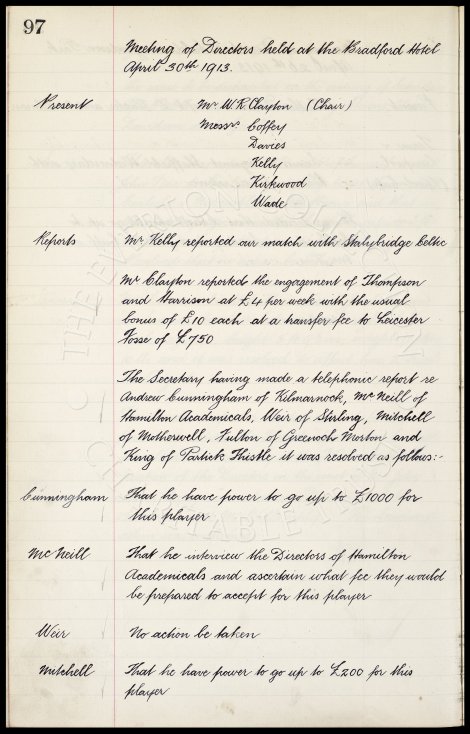 97
Meeting of Directors held at the Bradford Hotel
April 30th 1913.
Present Mr W.R. Clayton (Chair)
Messrs. Coffey
Davies
Kelly
Kirkwood
Wade
Reports Mr Kelly reported our match with Stalybridge Celtic
Mr Clayton reported the engagement of Thompson
and Harrison at £4 per week with the usual
bonus of £10 each at a transfer fee to Leicester
Fosse of £750
The Secretary having made a telephonic report re
Andrew Cunningham of Kilmarnock, McNeill of
Hamilton Academicals, Weir of Stirling, Mitchell
of Motherwell, Fulton of Greenock Morton and
King of Partick Thistle it was resolved as follows:-
Cunningham That he have power to go up to £1000 for
this player
McNeill That he interview the Directors of Hamilton
Academicals and ascertain what fee they would
be prepared to accept for this player
Weir No action be taken
Mitchell That he have power to go up to £200 for this
player